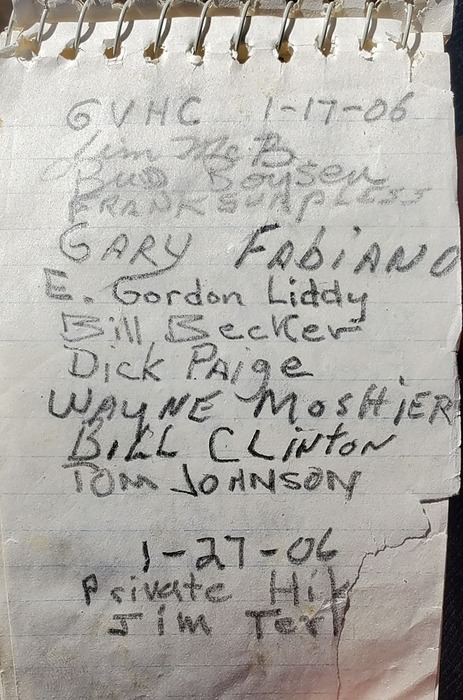 GVHC 1-17-06
Jim McB.
Bud Boysen
FRANK SURPLESS
GARY FABIANO
E. Gordon Liddy
Bill Becker
Dick Paige
WAYNE MOSHIER
BILL CLINTON
TOM JOHNSON
1-27-06
Private
Jim